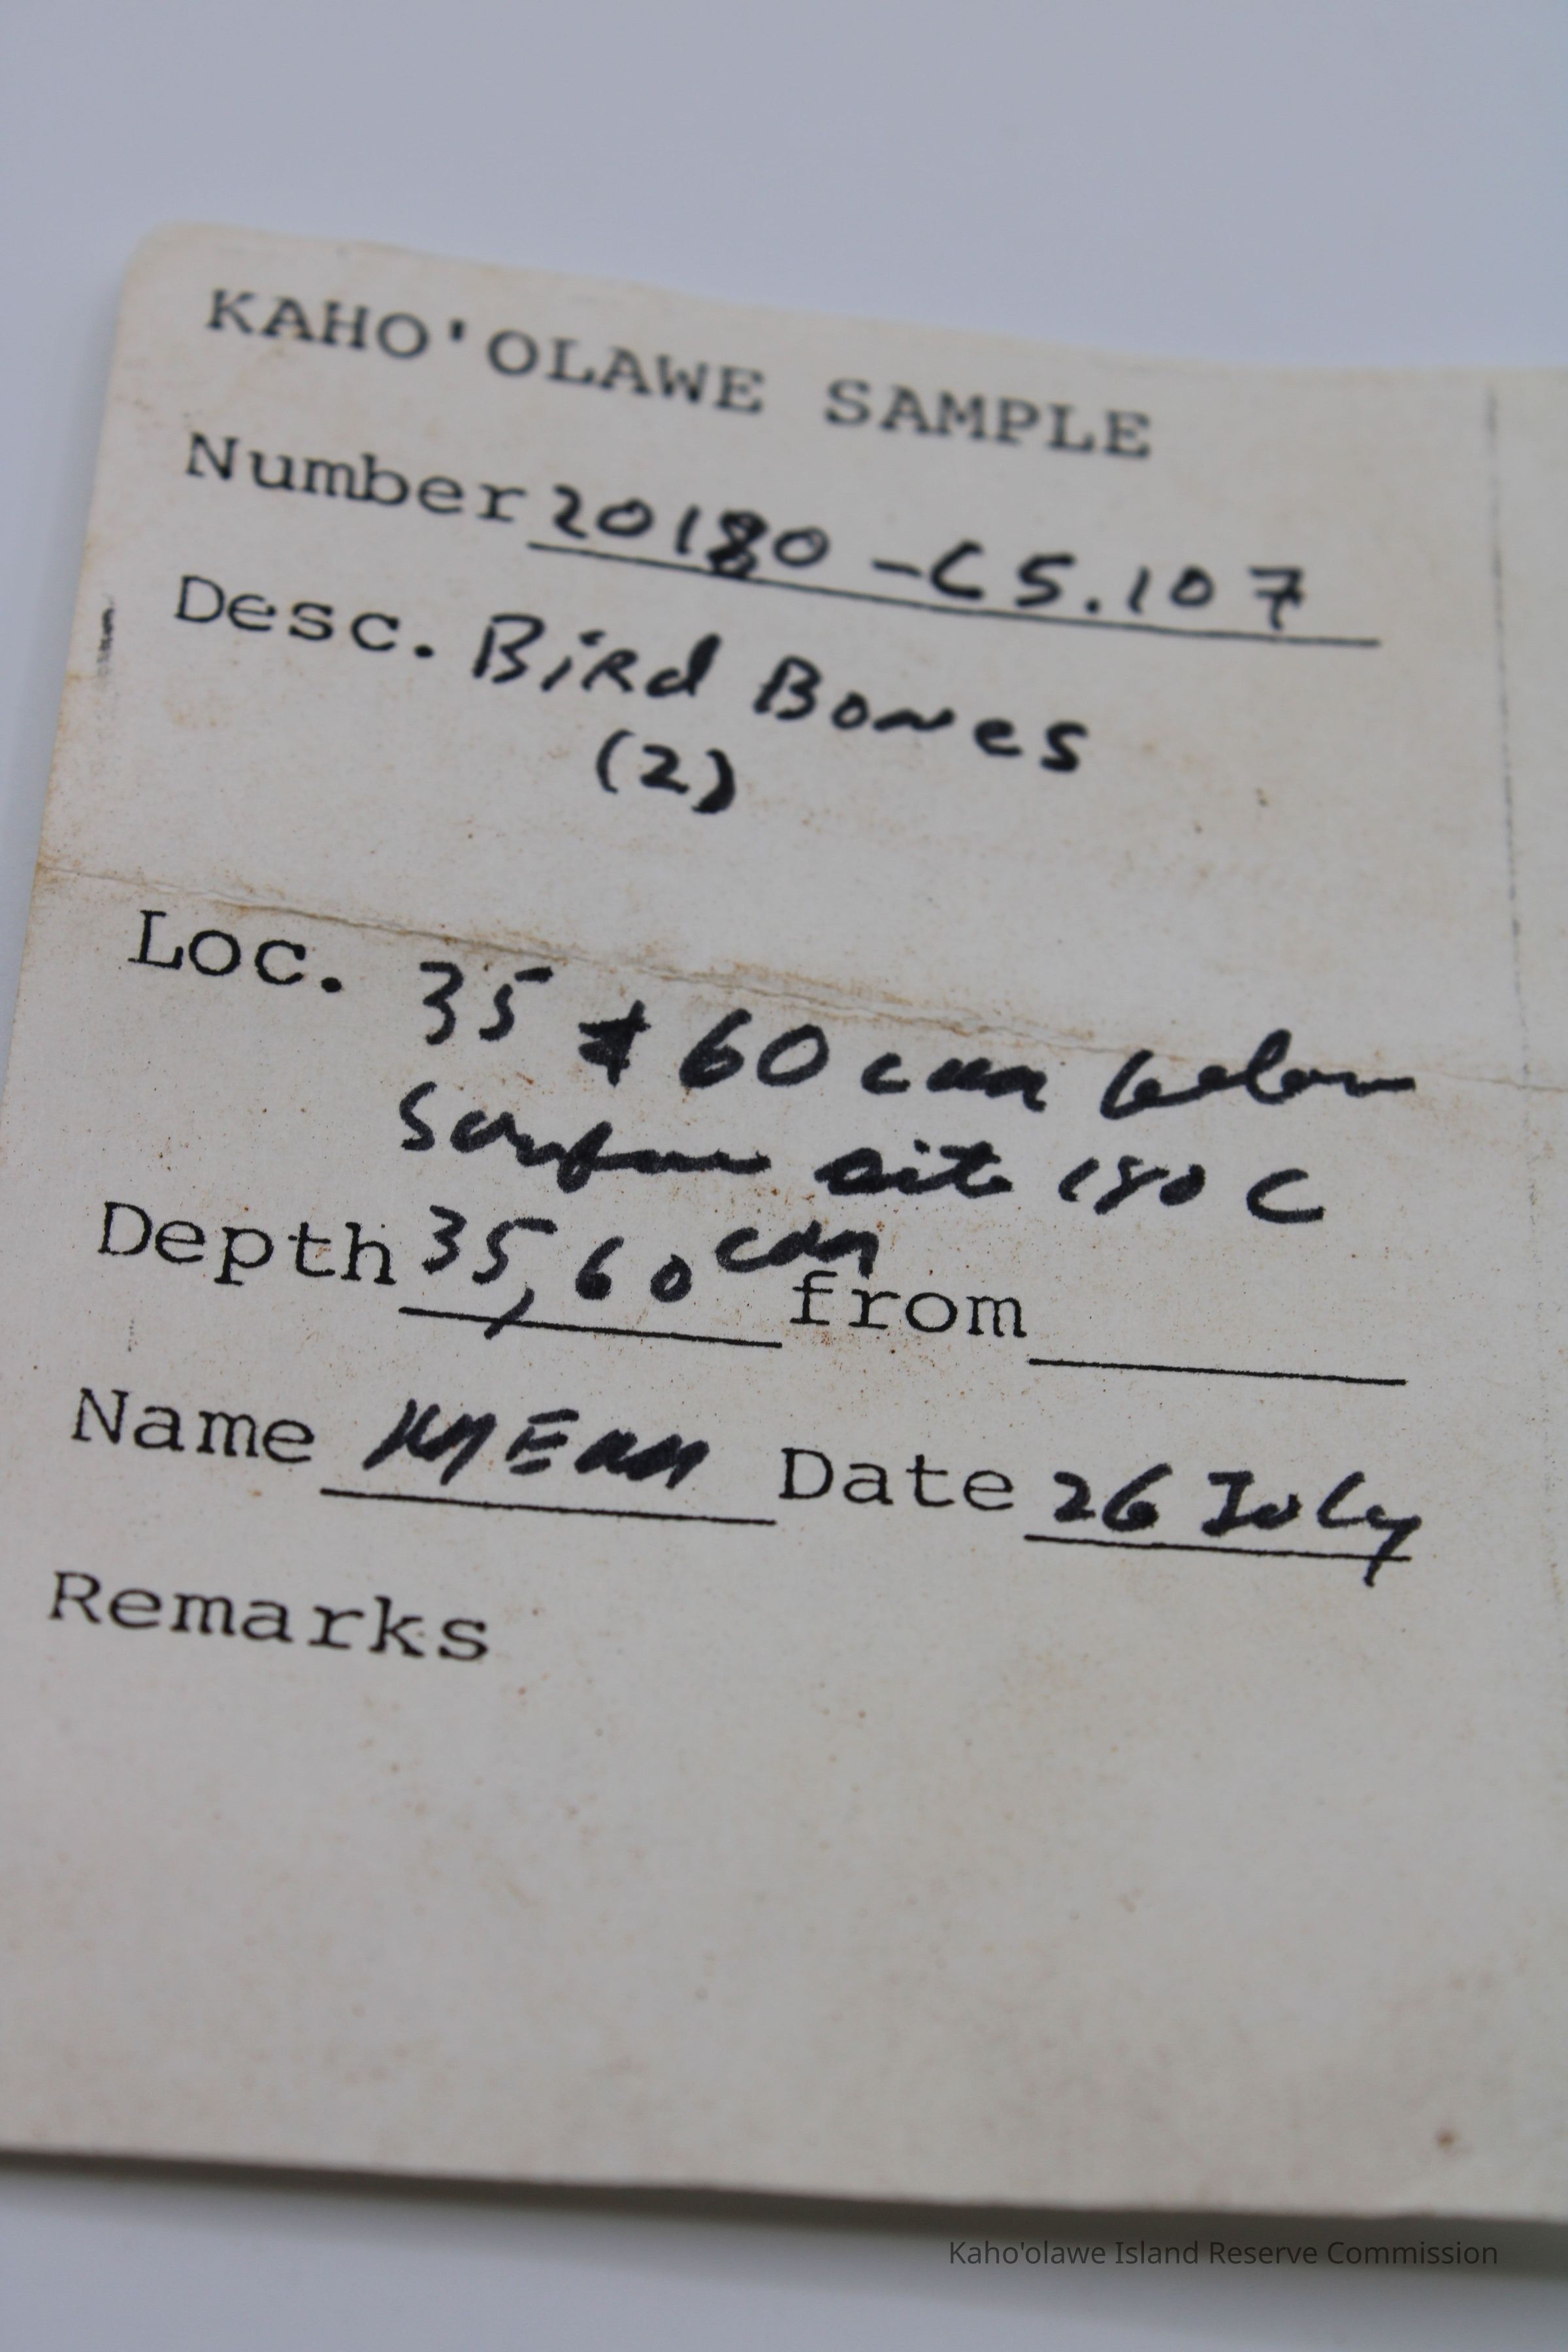 KAHO'OLAWE SAMPLE
Number 20180-C5.107
Desc. Bird Bones
(2)
Loc. 35 & 60 cm below
Surface site 180 C
Depth 35, 60 cm from
Name Date 26 July
Remarks
Kaho'olawe Island Reserve Commission